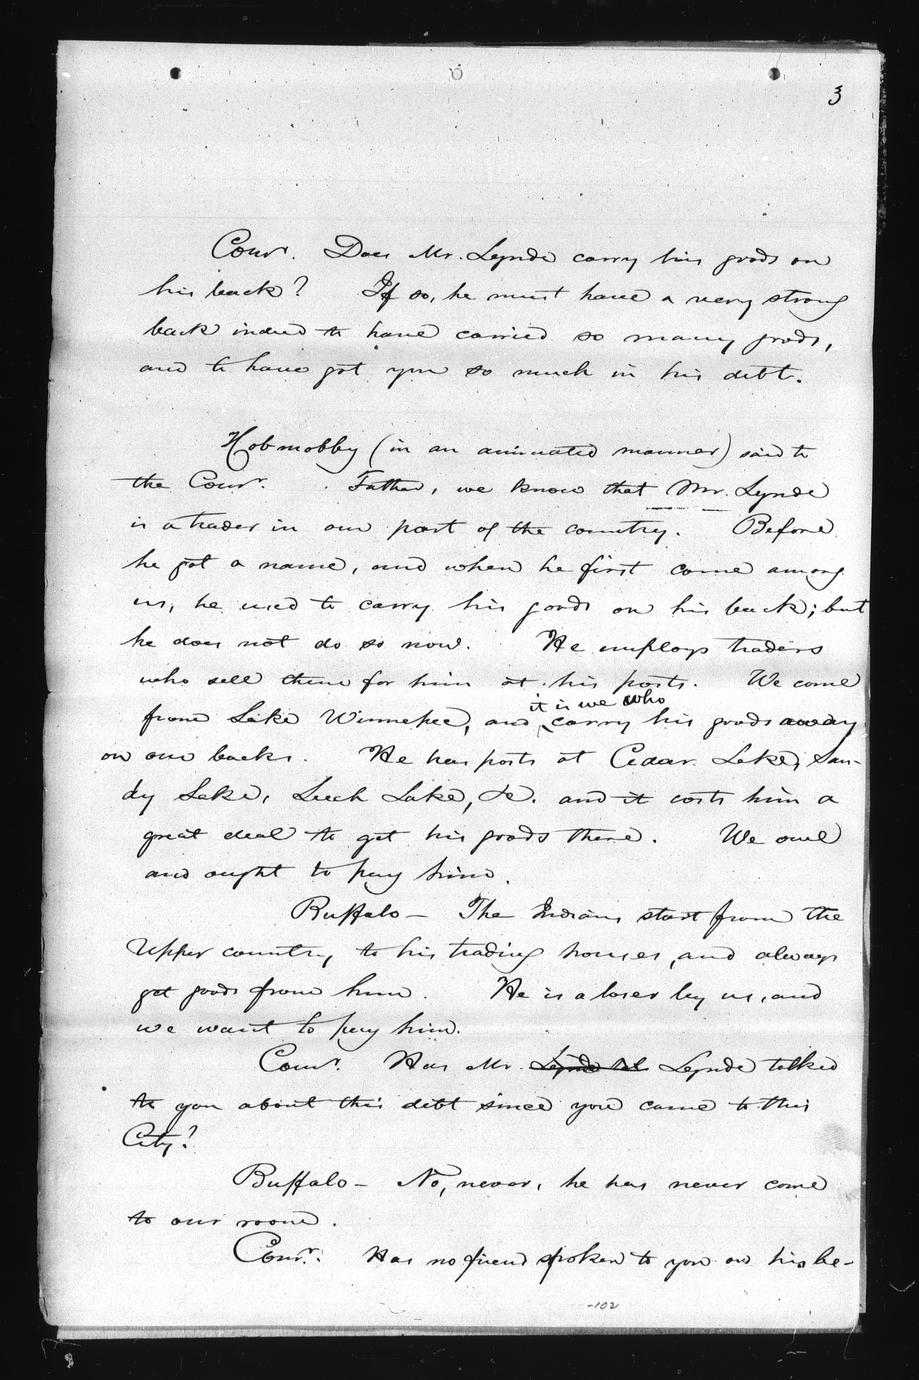 3
Comr. Does Mr. Lynde carry his goods on
his back? If so, he must have a very strong
back indeed to have carried so many goods,
and to have got you so much in his debt.
Hobmobby (in an animated manner) said to
the Comr. Father, we know that Mr. Lynde
is a trader in our part of the country. Before
he got a name, and when he first came among
us, he used to carry his goods on his back; but
he does not do so now. He employs traders
who sell them for him at his posts. We come
it is we who
from Lake Winnepec, and carry his goods away
on our backs. He has posts at Cedar Lake, San-
dy Lake, Leech Lake, &c. and it costs him a
great deal to get his goods there. We owe
and ought to pay him.
Buffalo — The Indians start from the
Upper country, to his trading houses, and always
get goods from him. He is a loser by us, and
we want to pay him.
Comr. Has Mr. Lynde talked
to you about this debt since you came to this
City?
Buffalo — No, never, he has never come
to our room.
Comr. Has no friend spoken to you on his be-
-102